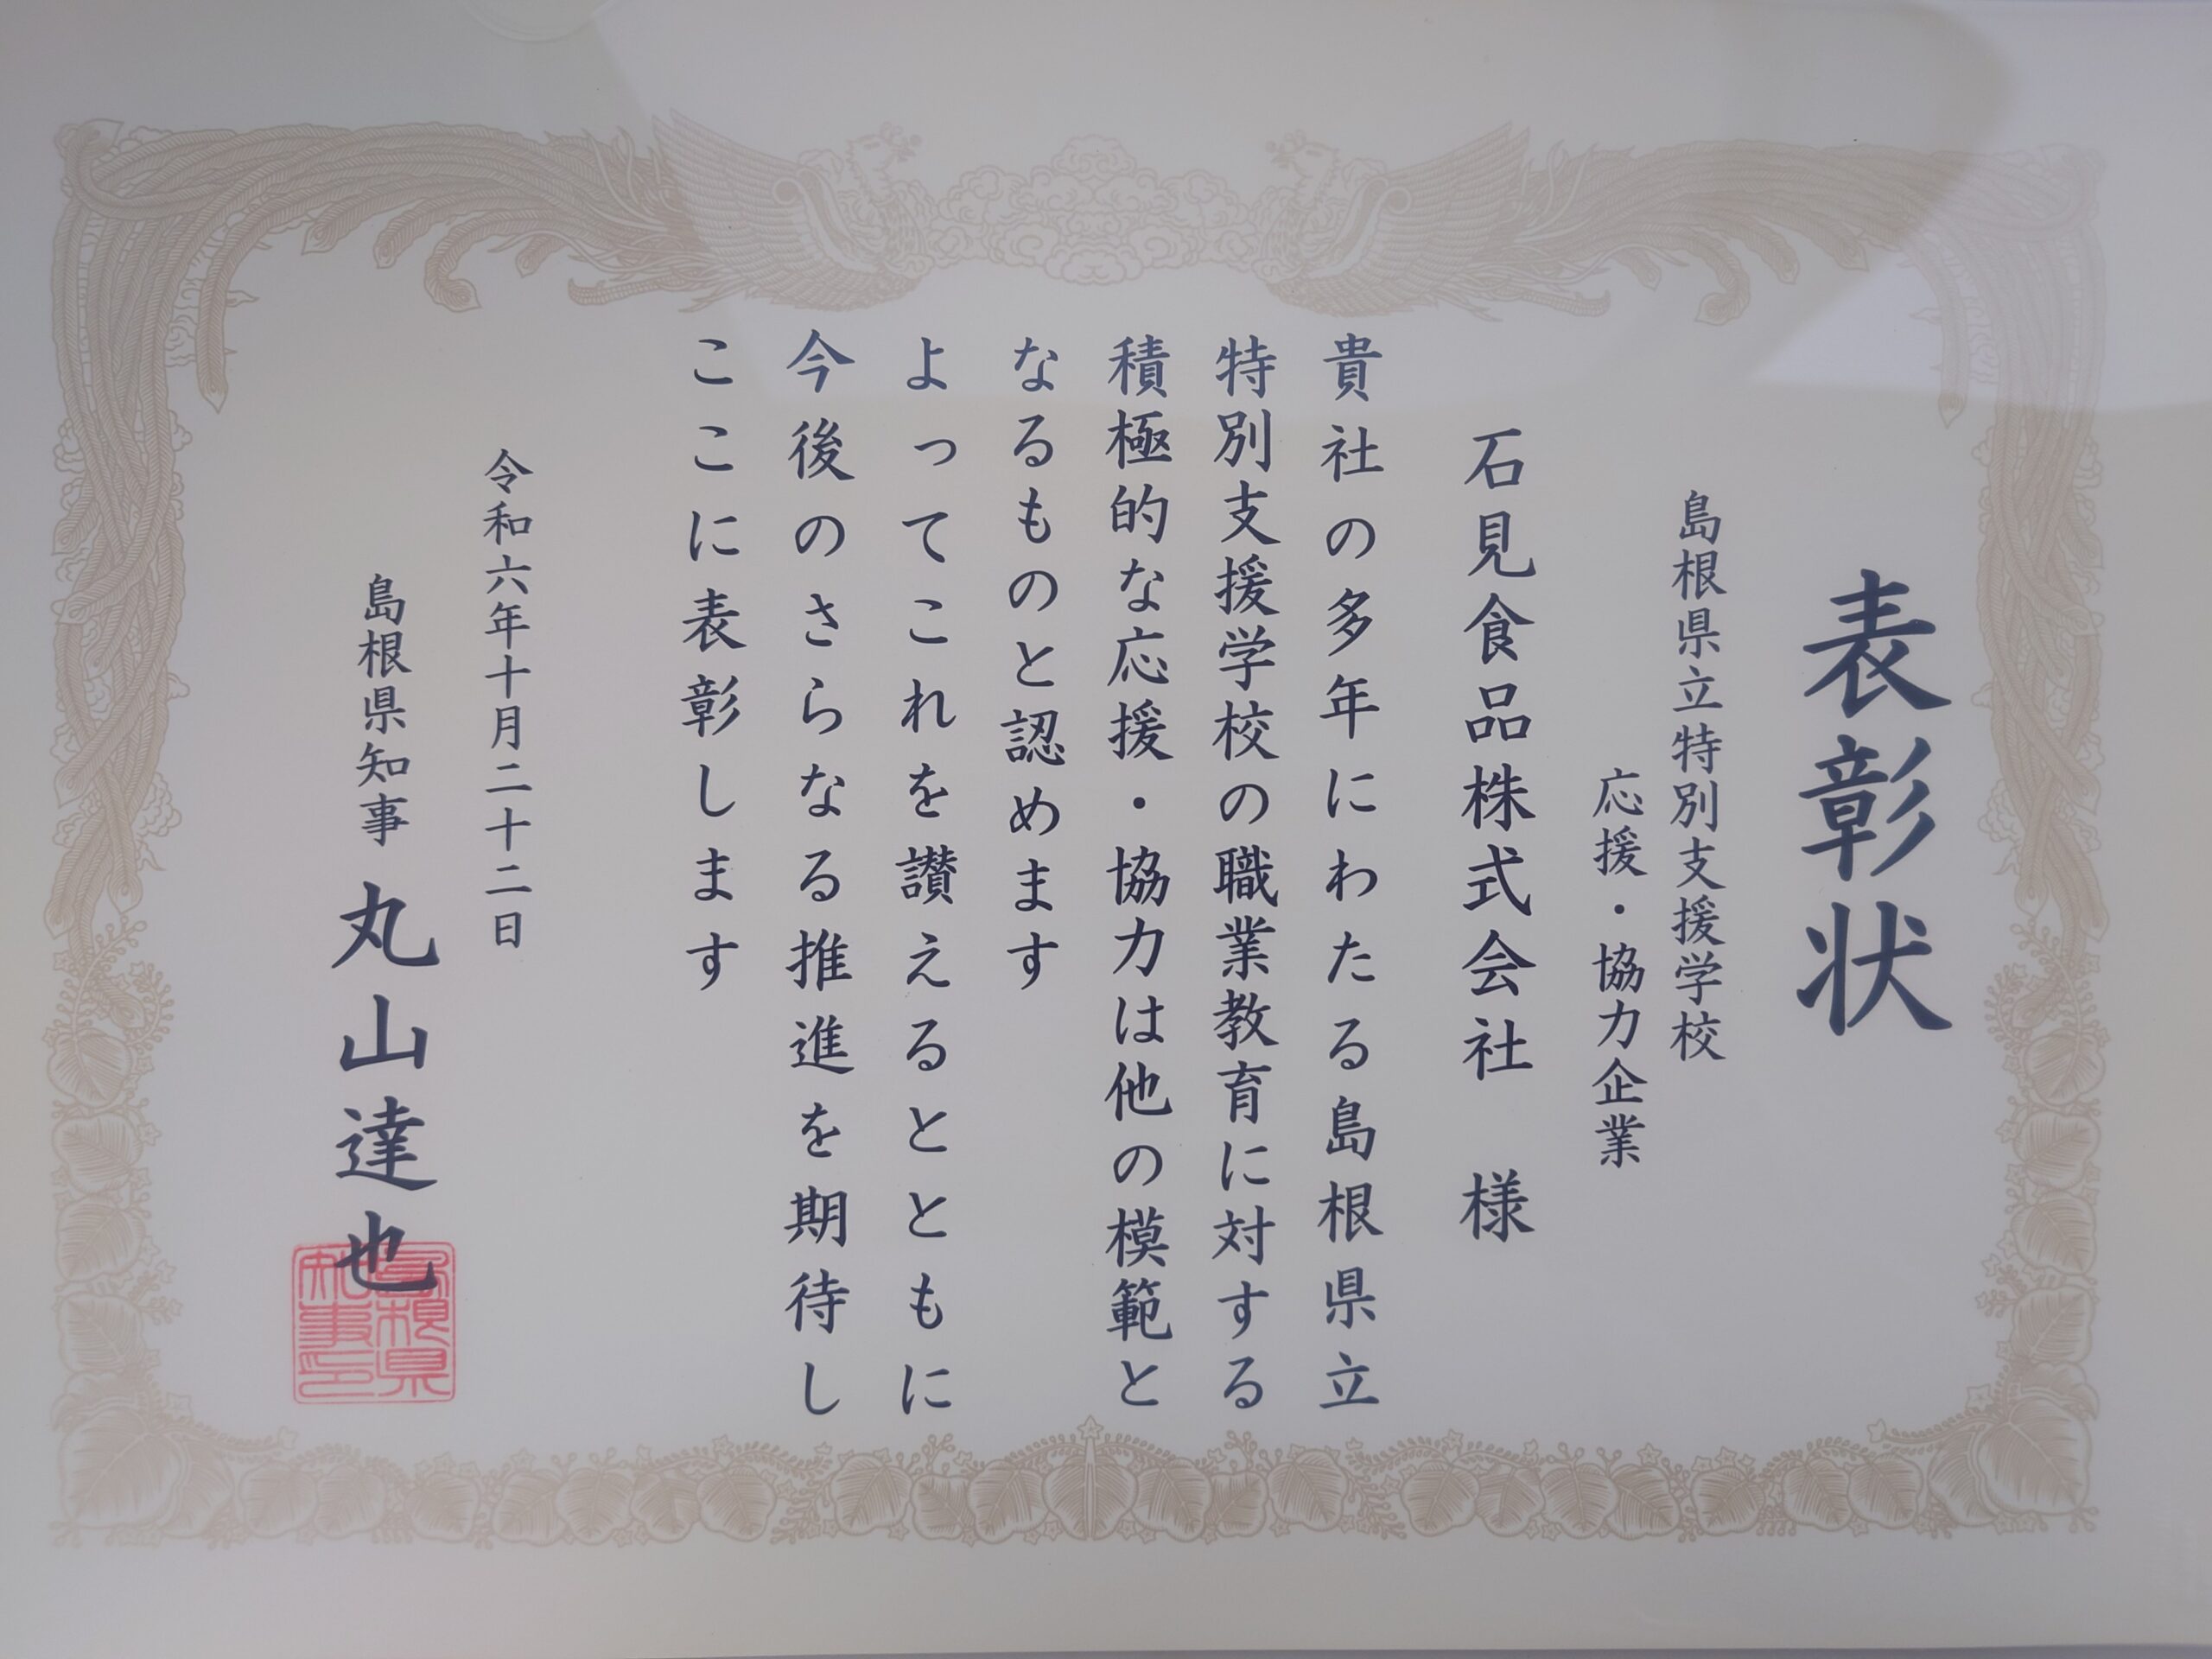 表彰状
島根県立特別支援学校
応援・協力企業
石見食品株式会社 様
貴社の多年にわたる島根県立
特別支援学校の職業教育に対する
積極的な応援・協力は他の模範と
なるものと認めます
よってこれを讃えるとともに
今後のさらなる推進を期待し
ここに表彰します
令和六年十月二十二日
島根県知事 丸山達也
島根県
知事印